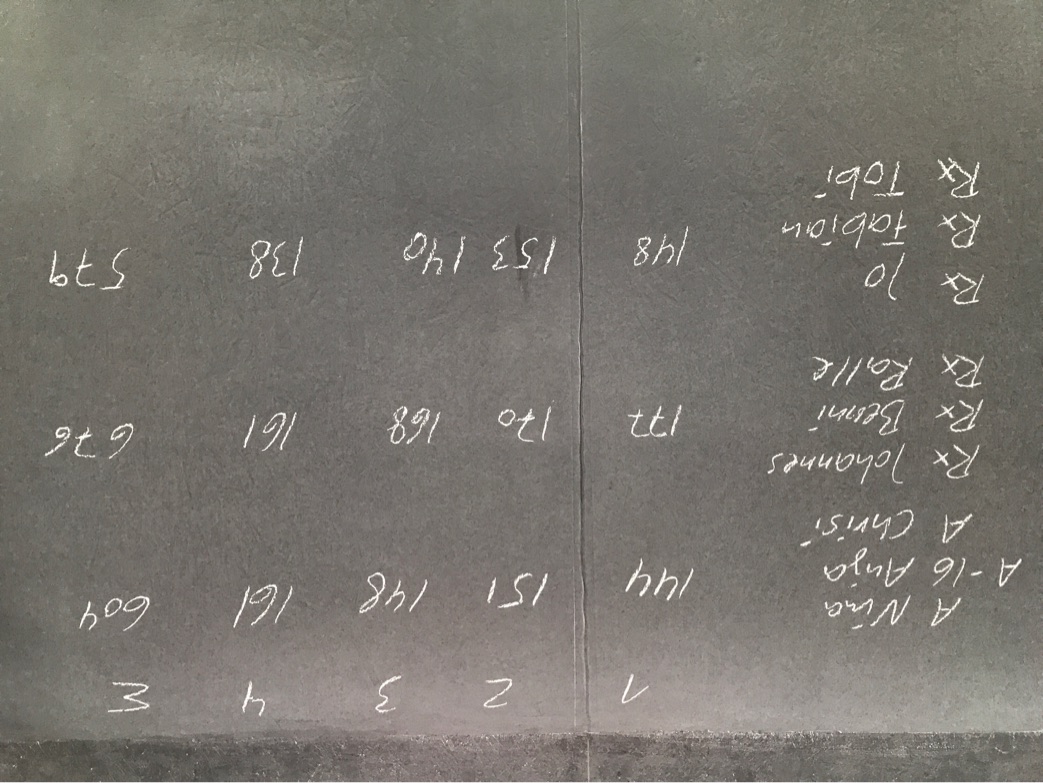 1 2 3 4 Σ
A Nina
A-16 Anja 144 151 148 161 604
A Chrisi
Rx Johannes
Rx Benni 177 170 168 161 676
Rx Ralle
Rx Jo
Rx Fabian 148 153 140 138 579
Rx Tobi